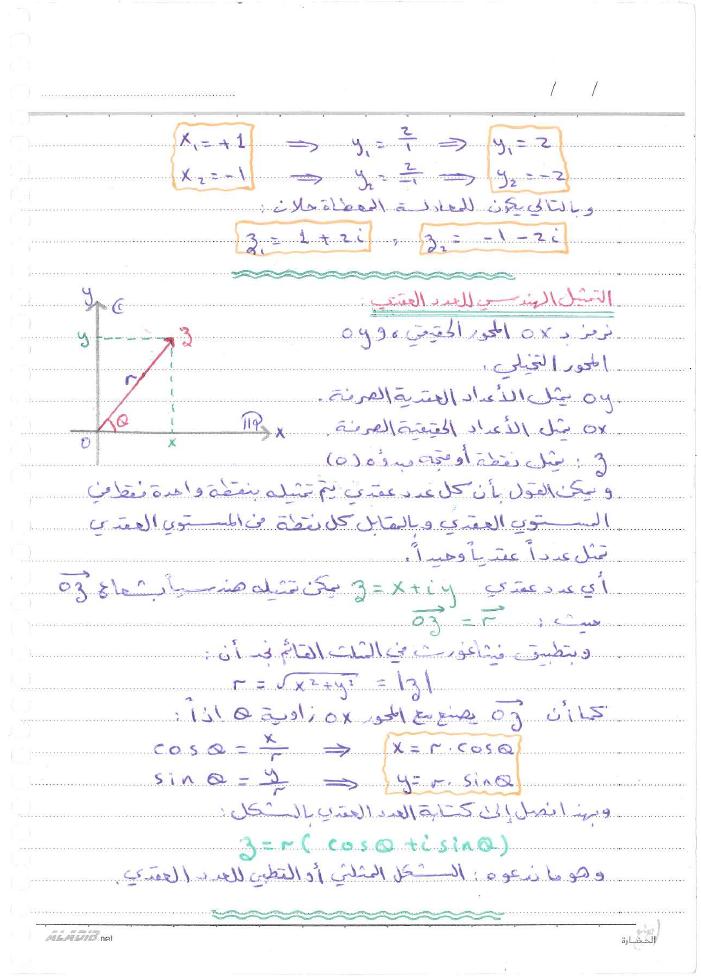 / /
x₁ = +1 ⇒ y₁ = 2/1 ⇒ y₁ = 2
x₂ = -1 ⇒ y₂ = 2/-1 ⇒ y₂ = -2
وبالتالي يكون للمعادلة المعطاة حلان :
z₁ = 1 + 2i , z₂ = -1 - 2i
التمثيل الهندسي للعدد العقدي :
نرمز بـ ox المحور الحقيقي ، و oy
المحور التخيلي .
oy يمثل الأعداد العقدية الصرفة .
ox يمثل الأعداد الحقيقية الصرفة .
z : يمثل نقطة أو متجه مبدؤه (o)
y
C
y
z
r
θ
o
x
IR
x
و يمكن القول بأن كل عدد عقدي يتم تمثيله بنقطة واحدة فقط في
المستوي العقدي وبالمقابل كل نقطة من المستوي العقدي
تمثل عدداً عقدياً وحيداً .
أي عدد عقدي z = x + iy يمكن تمثيله هندسياً بشعاع oz
حيث : oz = r
وبتطبيق فيثاغورث في المثلث القائم نجد أن :
r = √x²+y² = |z|
كما أن oz يصنع مع المحور ox زاوية θ اذاً :
cos θ = x/r ⇒ x = r . cos θ
sin θ = y/r ⇒ y = r . sin θ
وبهذا نصل إلى كتابة العدد العقدي بالشكل :
z = r ( cos θ + i sin θ )
وهو ما ندعوه : الشكل المثلثي أو القطبي للعدد العقدي .
ALADIB.net
الحضارة